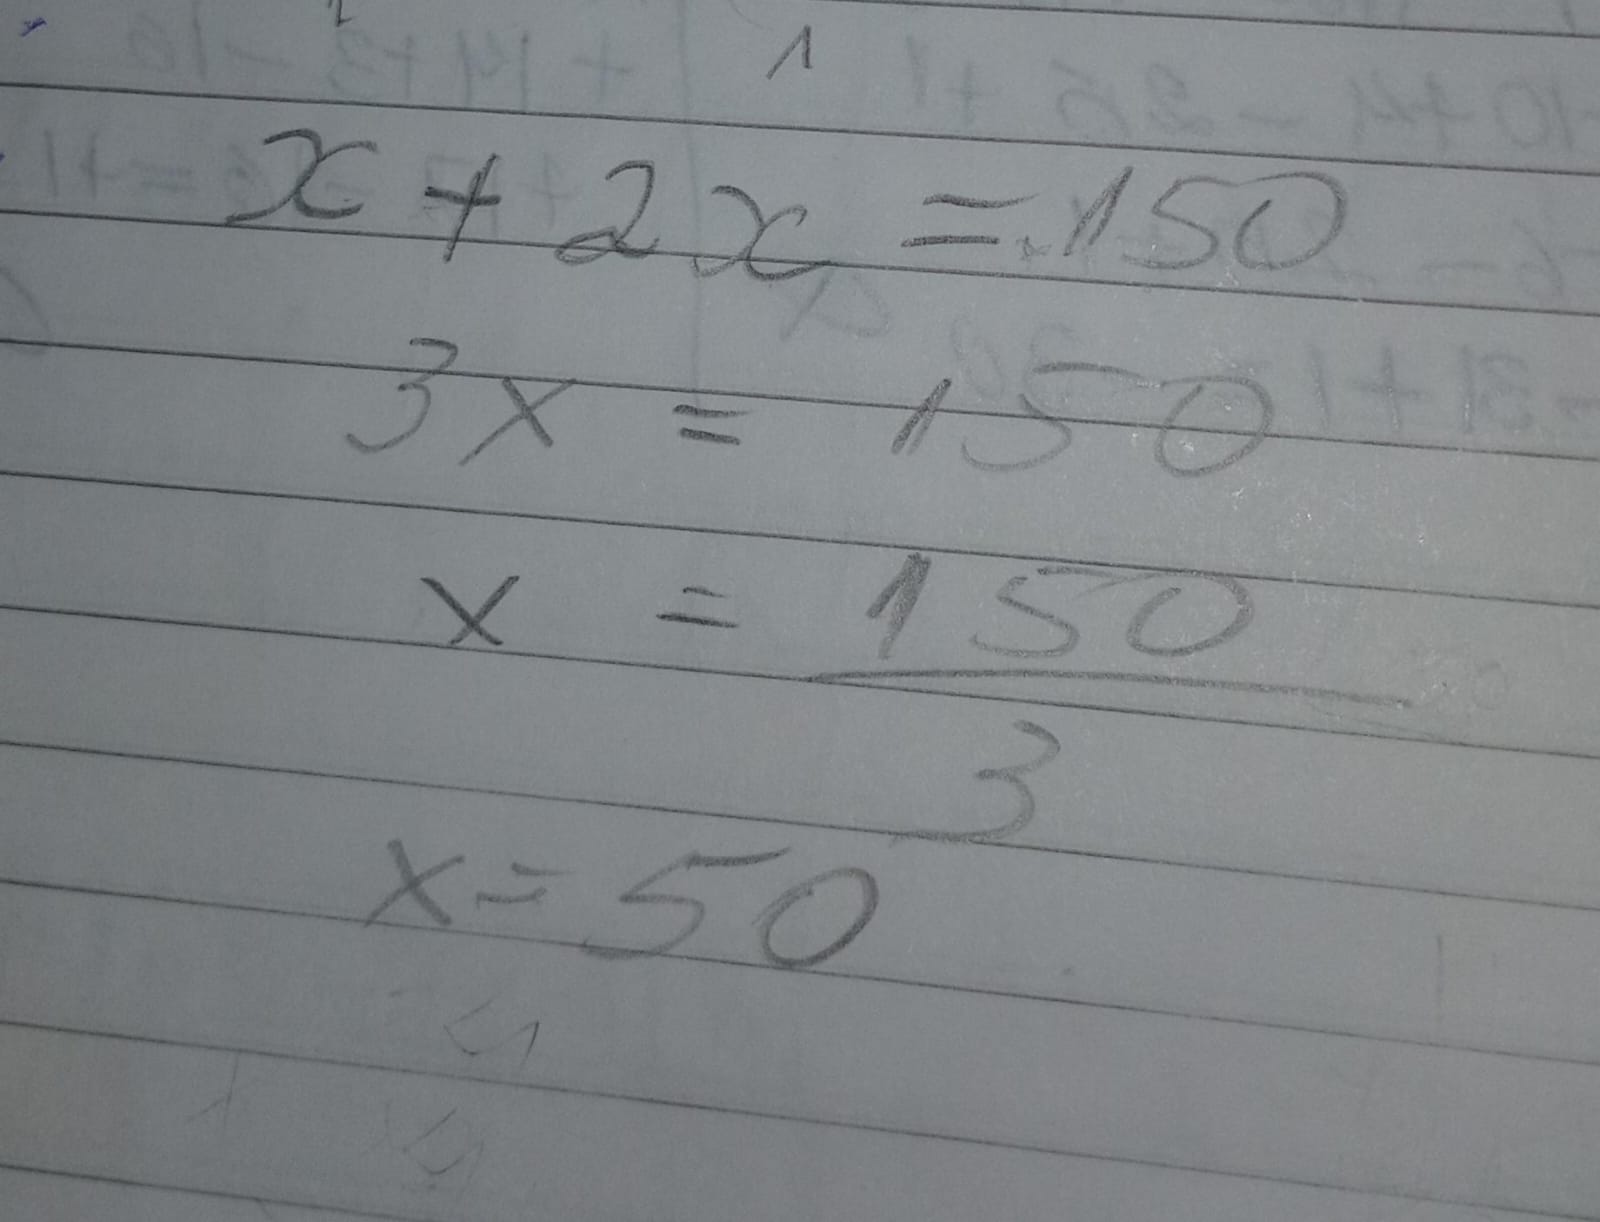 x + 2x = 150
3x = 150
x = 150
3
x = 50